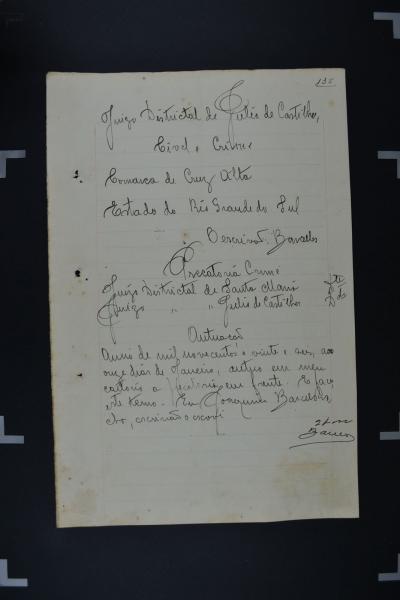 135
Juizo Districtal de Julio de Castilhos,
Civel e Crime
Comarca de Cruz Alta
Estado do Rio Grande do Sul
O escrivão. Barcellos
Precatoria Crime
Juizo Districtal de Santa Maria
Juizo " " Julio de Castilhos
Autuação
Anno de mil novecentos e vinte e seis, aos
onze dias de Janeiro, autuo em meu
cartorio a Precatoria em frente. E faço
este termo. Eu Joaquim Barcellos
escrivão o escrevi